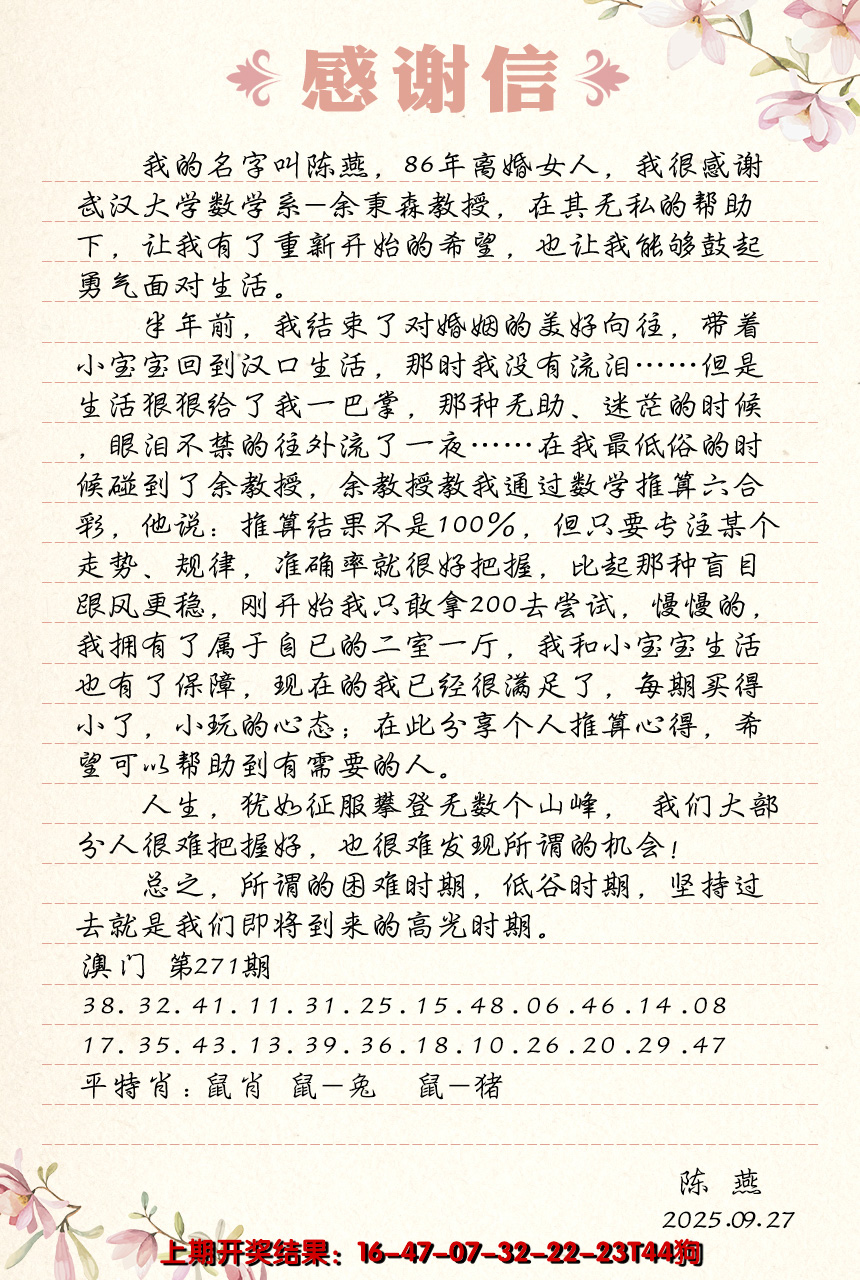 感谢信
我的名字叫陈燕，86年离婚女人，我很感谢
武汉大学数学系—余秉森教授，在其无私的帮助
下，让我有了重新开始的希望，也让我能够鼓起
勇气面对生活。
半年前，我结束了对婚姻的美好向往，带着
小宝宝回到汉口生活，那时我没有流泪……但是
生活狠狠给了我一巴掌，那种无助、迷茫的时候
，眼泪不禁的往外流了一夜……在我最低俗的时
候碰到了余教授，余教授教我通过数学推算六合
彩，他说：推算结果不是100%，但只要专注某个
走势、规律，准确率就很好把握，比起那种盲目
跟风更稳，刚开始我只敢拿200去尝试，慢慢的，
我拥有了属于自已的二室一厅，我和小宝宝生活
也有了保障，现在的我已经很满足了，每期买得
小了，小玩的心态；在此分享个人推算心得，希
望可以帮助到有需要的人。
人生，犹如征服攀登无数个山峰， 我们大部
分人很难把握好，也很难发现所谓的机会！
总之，所谓的困难时期，低谷时期，坚持过
去就是我们即将到来的高光时期。
澳门 第271期
38.32.41.11.31.25.15.48.06.46.14.08
17.35.43.13.39.36.18.10.26.20.29.47
平特肖：鼠肖 鼠—兔 鼠—猪
陈 燕
2025.09.27
上期开奖结果：16-47-07-32-22-23T44狗